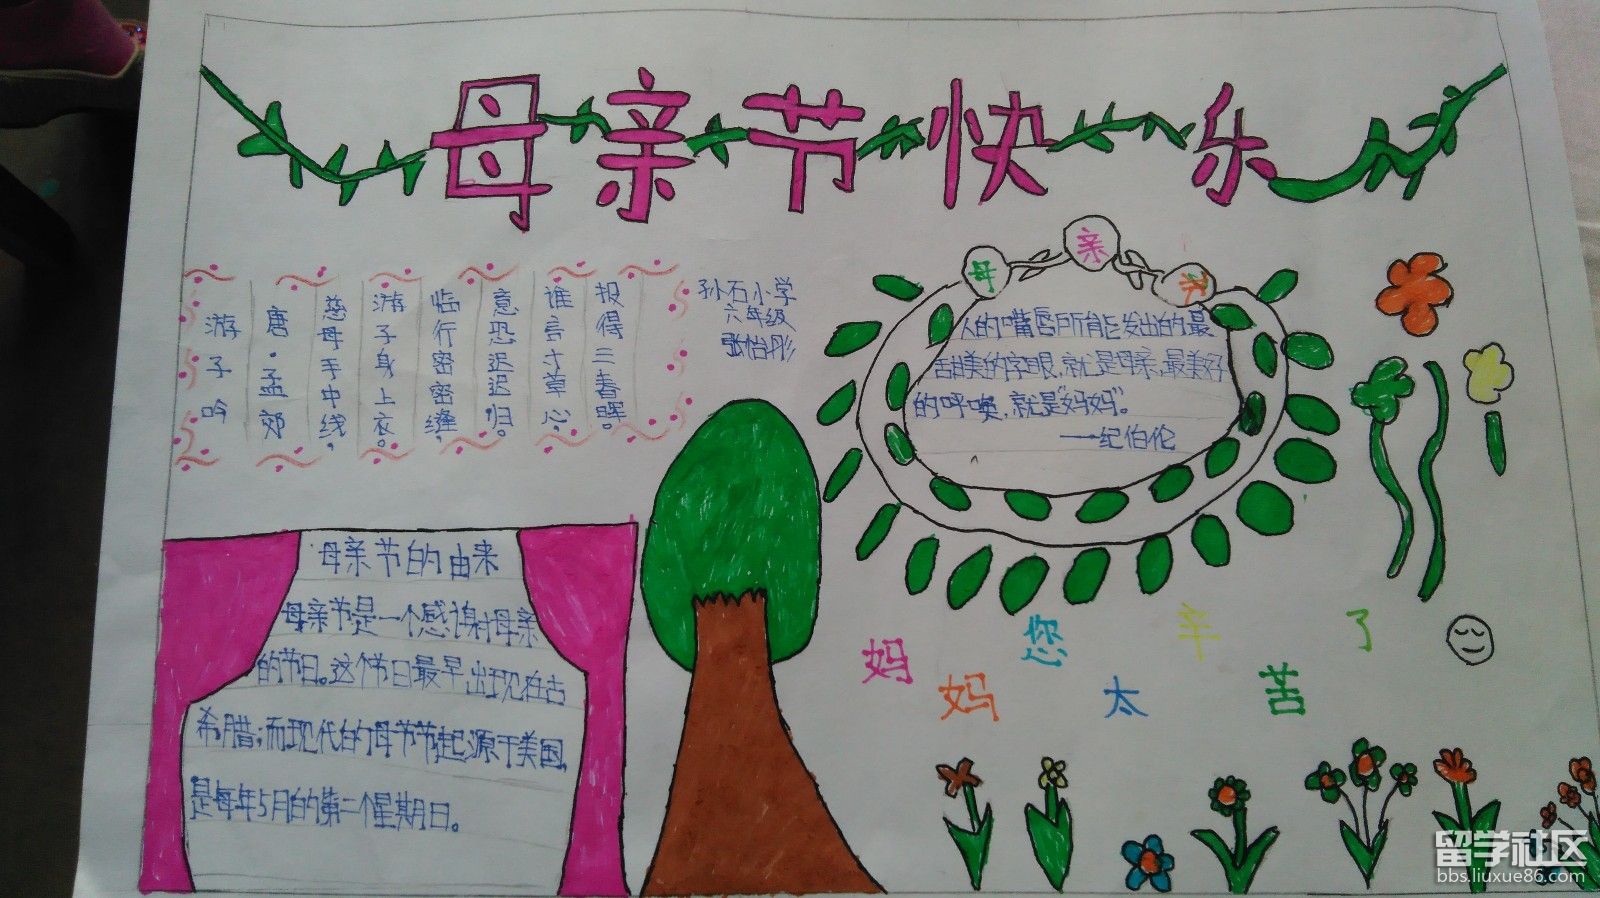 母亲节快乐
游子吟
唐·孟郊
慈母手中线，
游子身上衣。
临行密密缝，
意恐迟迟归。
谁言寸草心，
报得三春晖。
孙石小学
六年级
张怡彤
母亲节
人的嘴唇所能发出的最
甜美的字眼，就是母亲，最美好
的呼唤，就是“妈妈”。
——纪伯伦
母亲节的由来
母亲节是一个感谢母亲
的节日。这个节日最早出现在古
希腊；而现代的母节节起源于美国，
是每年5月的第二个星期日。
妈妈您太辛苦了
留学社区
bbs.liuxue86.com